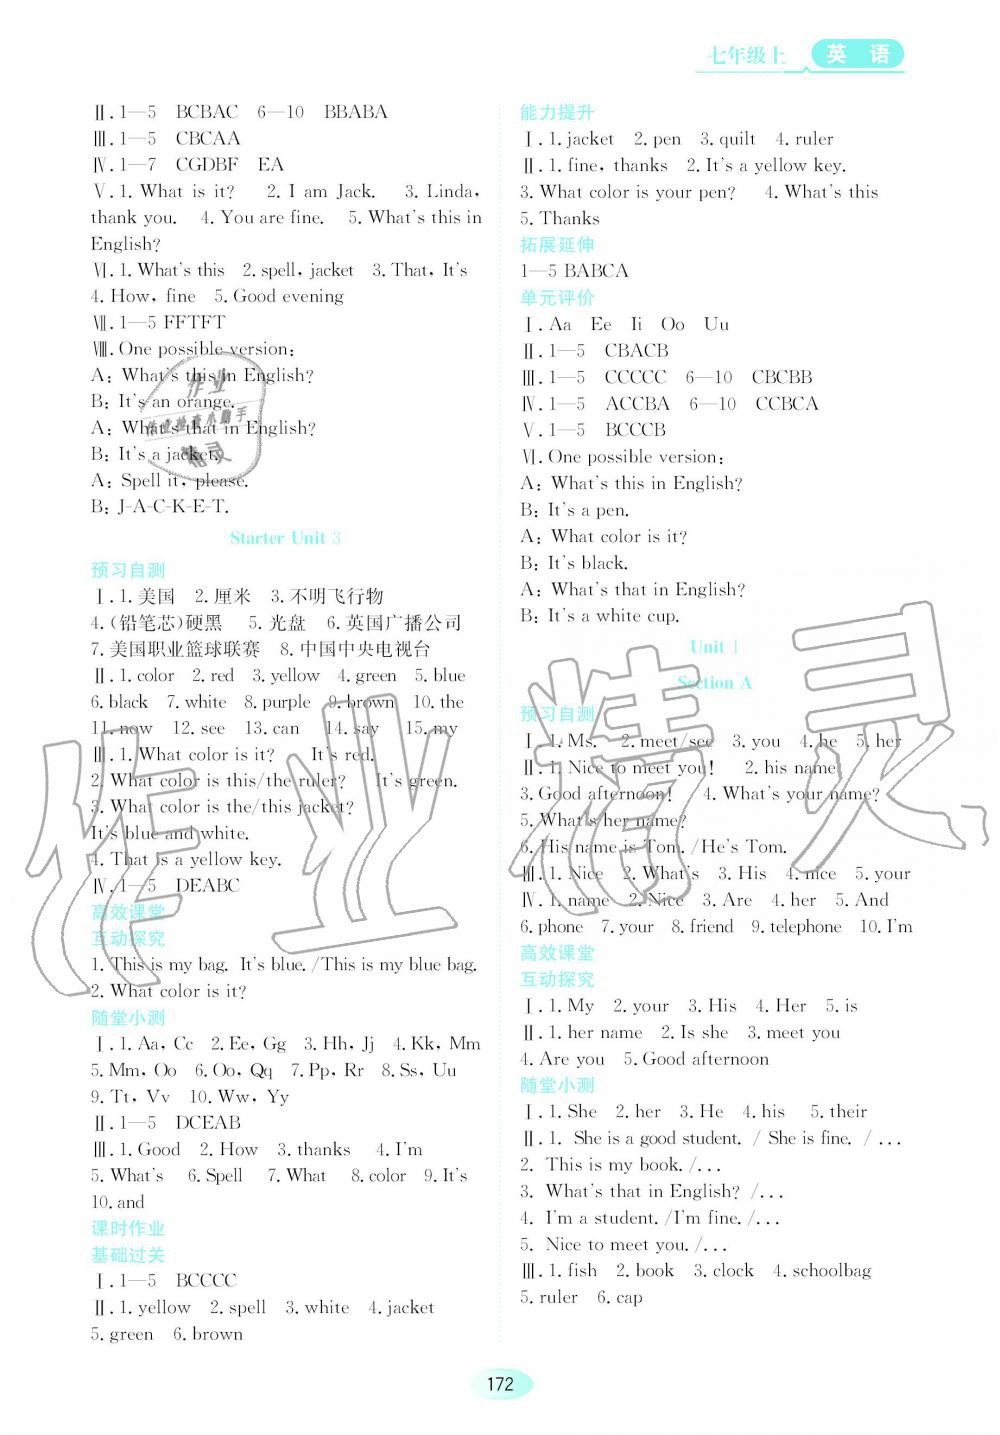 七年级上 英 语
Ⅱ. 1—5 BCBAC 6—10 BBABA
Ⅲ. 1—5 CBCAA
Ⅳ. 1—7 CGDBF EA
Ⅴ. 1. What is it? 2. I am Jack. 3. Linda,
thank you. 4. You are fine. 5. What's this in
English?
Ⅵ. 1. What's this 2. spell, jacket 3. That, It's
4. How, fine 5. Good evening
Ⅶ. 1—5 FFTFT
Ⅷ. One possible version:
A: What's this in English?
B: It's an orange.
A: What's that in English?
B: It's a jacket.
A: Spell it, please.
B: J-A-C-K-E-T.
Starter Unit 3
预习自测
Ⅰ. 1. 美国 2. 厘米 3. 不明飞行物
4. (铅笔芯)硬黑 5. 光盘 6. 英国广播公司
7. 美国职业篮球联赛 8. 中国中央电视台
Ⅱ. 1. color 2. red 3. yellow 4. green 5. blue
6. black 7. white 8. purple 9. brown 10. the
11. now 12. see 13. can 14. say 15. my
Ⅲ. 1. What color is it? It's red.
2. What color is this/the ruler? It's green.
3. What color is the/this jacket?
It's blue and white.
4. That is a yellow key.
Ⅳ. 1—5 DEABC
高效课堂
互动探究
1. This is my bag. It's blue. /This is my blue bag.
2. What color is it?
随堂小测
Ⅰ. 1. Aa, Cc 2. Ee, Gg 3. Hh, Jj 4. Kk, Mm
5. Mm, Oo 6. Oo, Qq 7. Pp, Rr 8. Ss, Uu
9. Tt, Vv 10. Ww, Yy
Ⅱ. 1—5 DCEAB
Ⅲ. 1. Good 2. How 3. thanks 4. I'm
5. What's 6. Spell 7. What 8. color 9. It's
10. and
课时作业
基础过关
Ⅰ. 1—5 BCCCC
Ⅱ. 1. yellow 2. spell 3. white 4. jacket
5. green 6. brown
能力提升
Ⅰ. 1. jacket 2. pen 3. quilt 4. ruler
Ⅱ. 1. fine, thanks 2. It's a yellow key.
3. What color is your pen? 4. What's this
5. Thanks
拓展延伸
1—5 BABCA
单元评价
Ⅰ. Aa Ee Ii Oo Uu
Ⅱ. 1—5 CBACB
Ⅲ. 1—5 CCCCC 6—10 CBCBB
Ⅳ. 1—5 ACCBA 6—10 CCBCA
Ⅴ. 1—5 BCCCB
Ⅵ. One possible version:
A: What's this in English?
B: It's a pen.
A: What color is it?
B: It's black.
A: What's that in English?
B: It's a white cup.
Unit 1
Section A
预习自测
Ⅰ. 1. Ms. 2. meet/see 3. you 4. he 5. her
Ⅱ. 1. Nice to meet you! 2. his name
3. Good afternoon! 4. What's your name?
5. What's her name?
6. His name is Tom. /He's Tom.
Ⅲ. 1. Nice 2. What's 3. His 4. nice 5. your
Ⅳ. 1. name 2. Nice 3. Are 4. her 5. And
6. phone 7. your 8. friend 9. telephone 10. I'm
高效课堂
互动探究
Ⅰ. 1. My 2. your 3. His 4. Her 5. is
Ⅱ. 1. her name 2. Is she 3. meet you
4. Are you 5. Good afternoon
随堂小测
Ⅰ. 1. She 2. her 3. He 4. his 5. their
Ⅱ. 1. She is a good student. / She is fine. / ...
2. This is my book. /...
3. What's that in English? /...
4. I'm a student. /I'm fine. /...
5. Nice to meet you. /...
Ⅲ. 1. fish 2. book 3. clock 4. schoolbag
5. ruler 6. cap
172
作业精灵